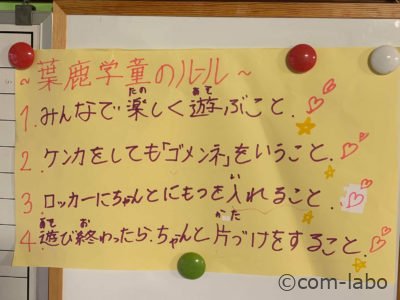 ~葉鹿学童のルール~
1.みんなで楽しく遊ぶこと.
2.ケンカをしても「ゴメンネ」をいうこと.
3.ロッカーにちゃんとにもつを入れること.
4.遊び終わったら.ちゃんと片づけをすること.
©com-labo